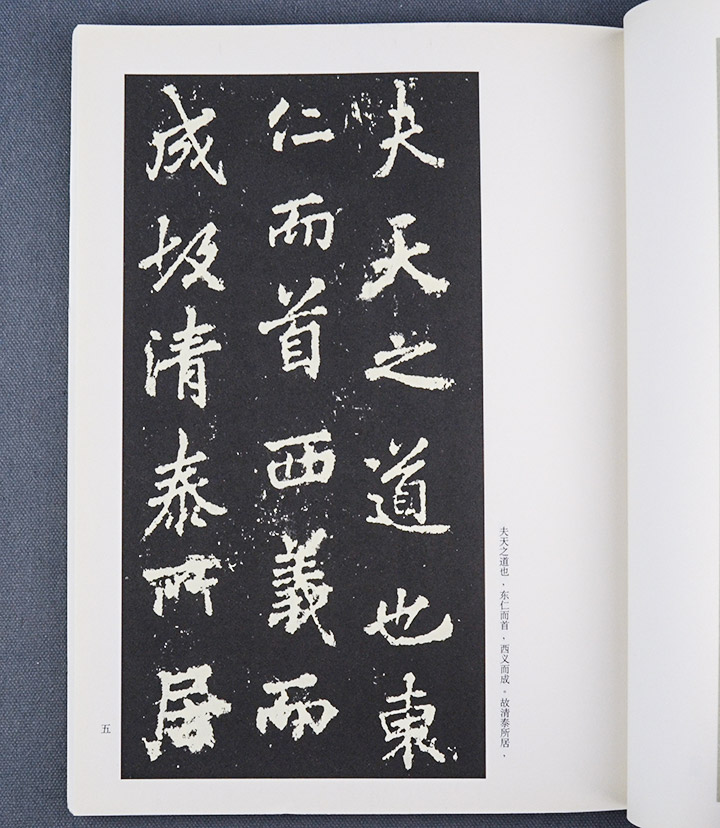 夫天之道也東
仁而首西義而
成故清泰所居
夫天之道也，东仁而首，西义而成。故清泰所居，
五